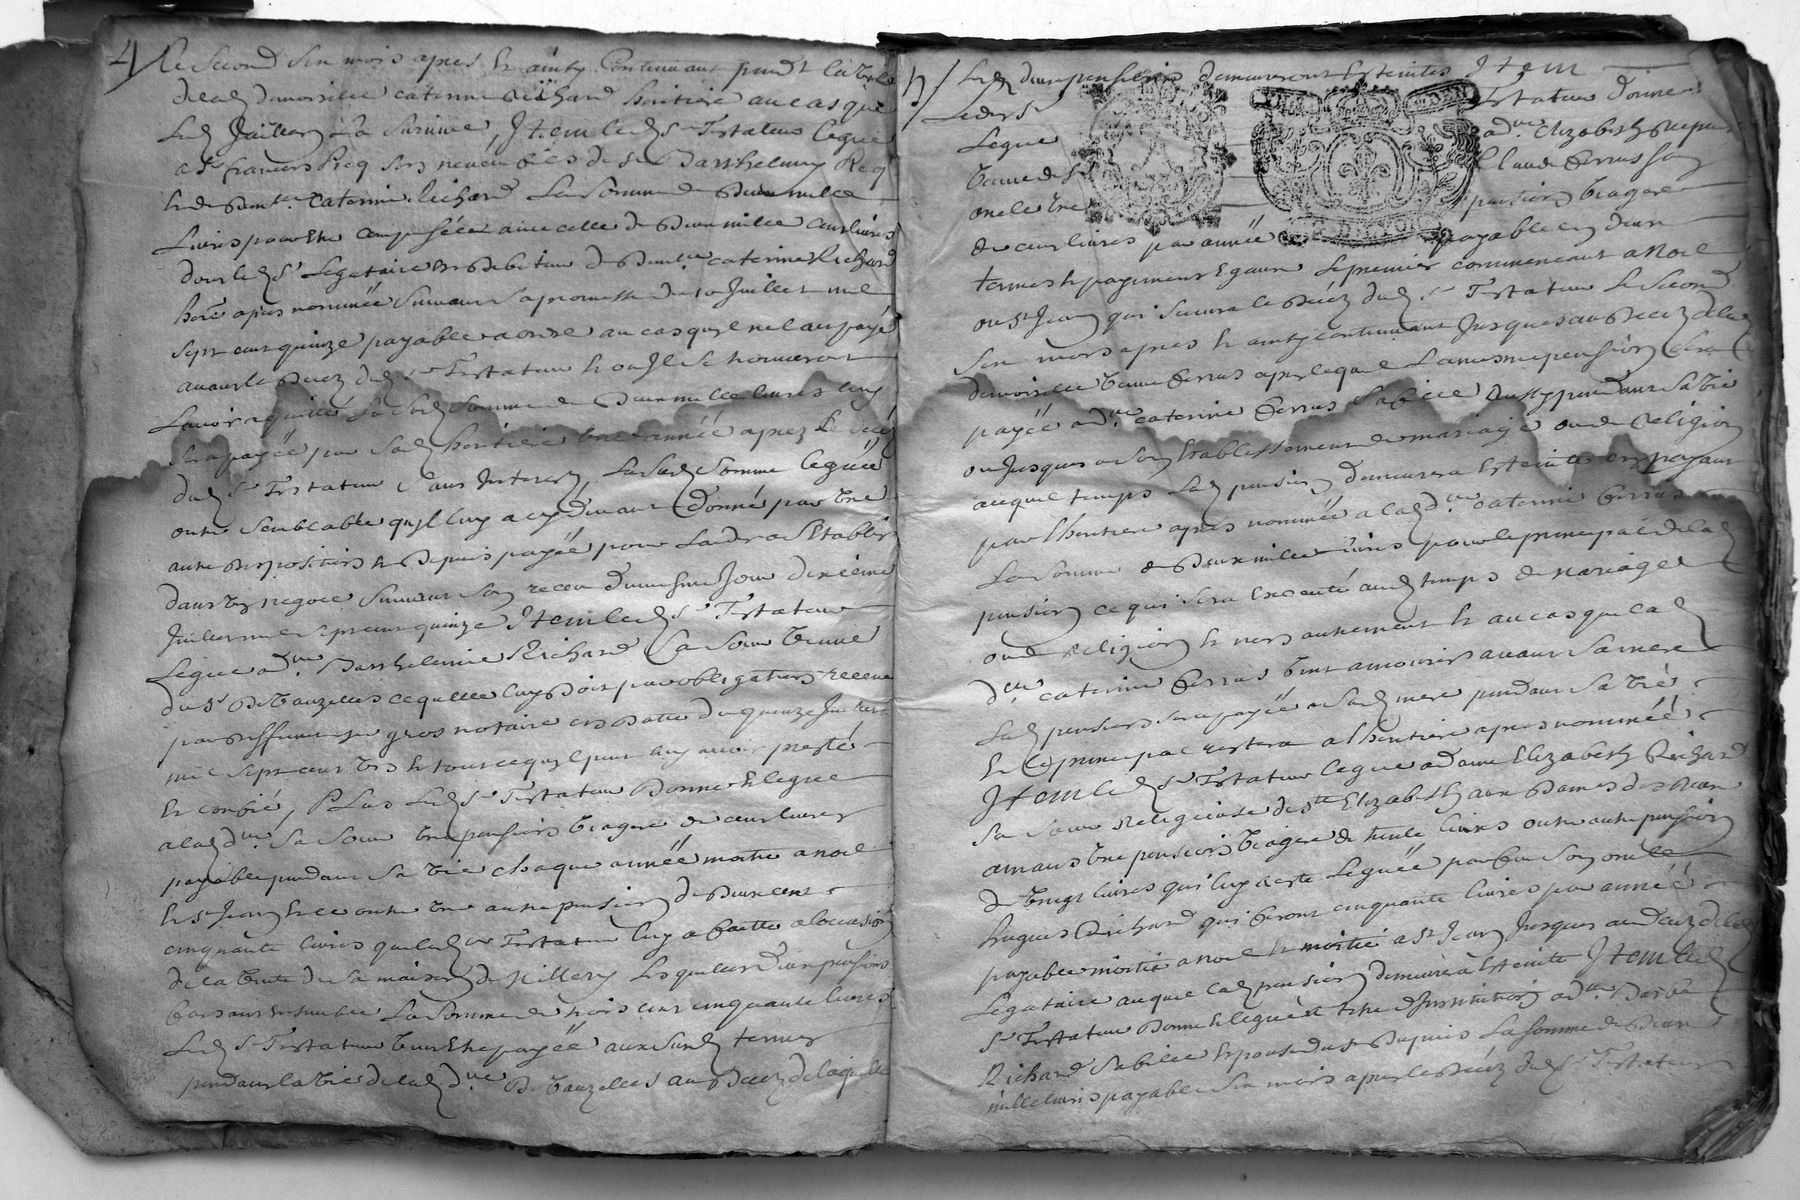 4/ le second six mois apres et ainsy continuant pendt la vie
de lad damoiselle caterine Richard heritiere au cas que
led Jaillard la survive, Item led sr Testateur legue
a sr francois Reg son neveu fils de sr Barthelemy Reg
et de damlle caterine Richard La somme de Deux mille
Livres pour Etre compensée avec celle de Deux mille cens livres
dont led sr Legataire est Debiteur de damlle caterine Richard
here apres nommée suivant sa promesse du 10 Juillet mil
sept cent quinze payable a ordre au cas quil ne l'ait payé
avant le Decez dud sr Testateur et ou Il se trouveroit
L'avoir aquitté La sud somme de Deux mille livres luy
sera payée par sad heritiere une année apres le decez
dud sr Testateur sans Interest, La sud somme leguée
outre semblable quil luy a cy devant donné par une
autre disposition et depuis payée pour l'aider a s'Etablir
dans son negoce suivant son receu du mesme Jour dixieme
Juillet mil sept cent quinze Item led sr Testateur
Legue a dlle Barthelemie Richard sa sœur veuve
du sr De Vauzelles ce quelle luy doit par obligation receue
par deffunt me gros notaire en datte du quinze Juillet
mil sept cens et tout ce quil peut luy avoir presté
et confié, Plus Led sr Testateur Donne et legue
a lad dlle sa sœur une pension viagere de cens livres
payable pendant sa vie chaque année moitié a noel
et st Jean et ce outre une autre pension de Deux cent
cinquante livres que led sr Testateur luy a faitte a l'occasion
de la vente de sa maison de Millery lesquelles deux pensions
faisant ensemble La somme de trois cent cinquante livres
Led sr Testateur veut Etre payée aux susd termes
pendant la vie de lad dlle De Vauzelles au Decez de laquelle
lesd deux pensions demeureront Esteintes Item
Led sr Testateur donne
Legue a dlle Elizabeth
veuve de sr Claude Perrus
une pension viagere
de cens livres par année payable en deux
termes et payemens Egaux le premier commencant a Noel
ou st Jean qui suivra le Decez dud sr Testateur le second
six mois apres et ainsy continuant Jusques au Decez de lad
damoiselle veuve Perrus apres lequel La mesme pension sera
payée a dlle caterine Perrus sa fille aussy pendant sa vie
ou Jusques a son Etablissement de mariage ou de Religion
auquel temps Lad pension demeurera Esteinte en payant
par l'heritiere apres nommée a lad dlle caterine Perrus
La somme de Deux mille livres pour le principal de lad
pension ce qui sera executé aud temps de Mariage
ou de Religion et non autrement et au cas que lad
dlle caterine Perrus vint a mourir avant sa mere
Lad pension sera payée a sad mere pendant sa vie
et le principal restera a l'heritiere apres nommée
Item led sr Testateur legue a dame Elizabeth Richard
sa sœur Religieuse de ste Elizabeth aux Dames
une pension viagere de trente livres outre autre pension
de vingt livres qui luy a esté leguée par feu son oncle
hugues Richard qui feront cinquante livres par année
payable moitié a noel et moitié a st Jean Jusques au decez de lad
Legataire auquel lad pension demeurera Esteinte Item led
sr Testateur Donne et legue a titre d'Institution a dlle
Richard sa fille Espouse du sr Dupuis La somme de Deux
mille livres payable six mois apres le Decez dud sr Testateur